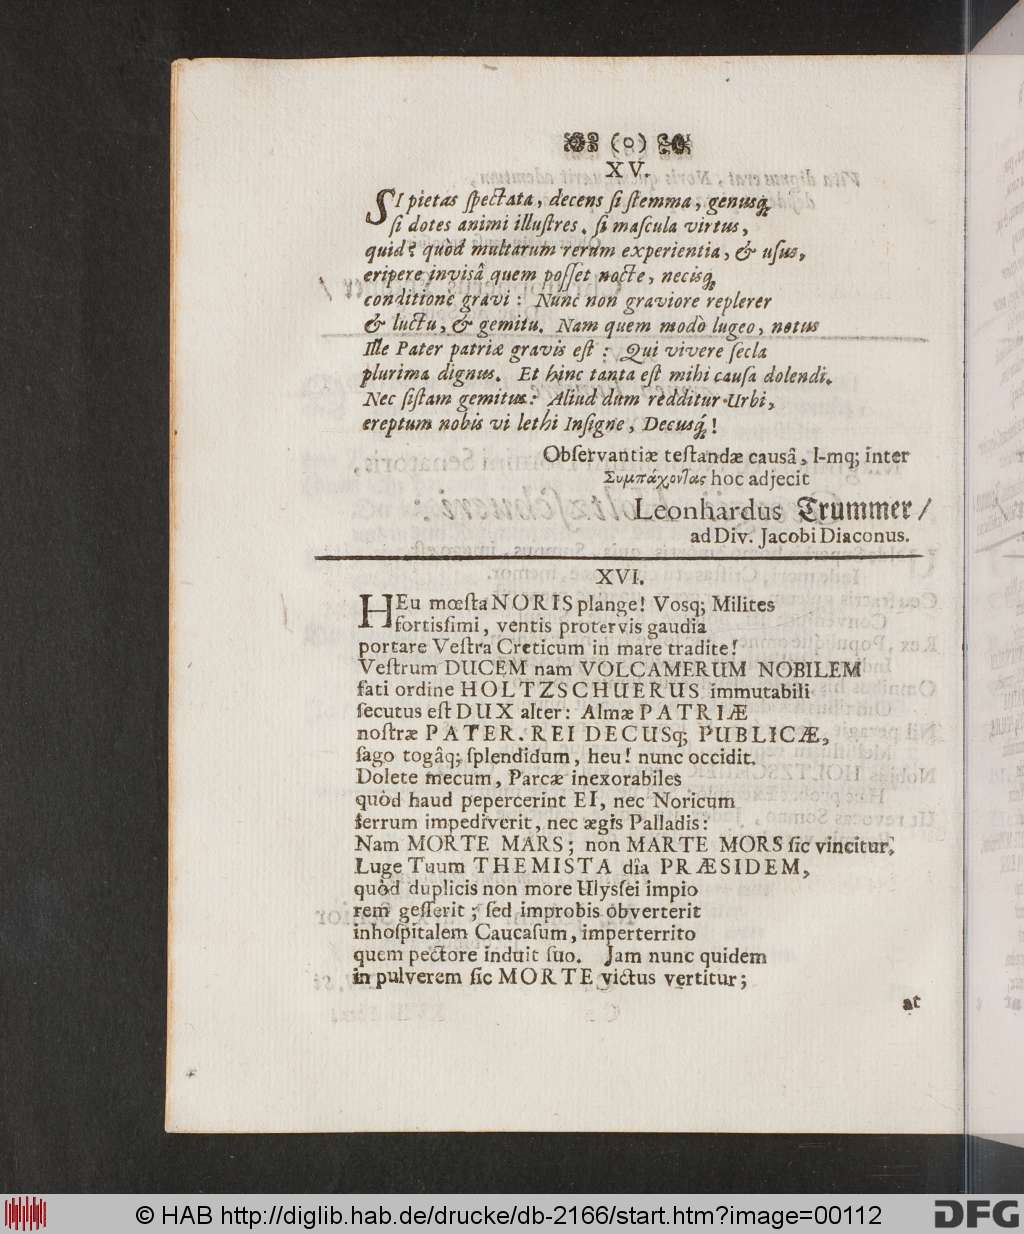 (o)
XV.
SI pietas ſpectata, decens ſi ſtemma, genusq́;
ſi dotes animi illuſtres, ſi maſcula virtus,
quid? quòd multarum rerum experientia, & uſus,
eripere inviſâ quem poſſet nocte, necisq́;
conditione gravi: Nunc non graviore replerer
& luctu, & gemitu. Nam quem modò lugeo, notus
Ille Pater patriæ gravis eſt: Qui vivere ſecla
plurima dignus. Et hinc tanta eſt mihi cauſa dolendi.
Nec ſiſtam gemitus: Aliud dum redditur Urbi,
ereptum nobis vi lethi Inſigne, Decusq́;!
Obſervantiæ teſtandæ causâ, I-mq; inter
Συμπάχοντας hoc adjecit
Leonhardus Trummer/
ad Div. Jacobi Diaconus.
XVI.
HEu mœſta NORIS plange! Vosq; Milites
fortisſimi, ventis protervis gaudia
portare Veſtra Creticum in mare tradite!
Veſtrum DUCEM nam VOLCAMERUM NOBILEM
fati ordine HOLTZSCHUERUS immutabili
ſecutus eſt DUX alter: Almæ PATRIÆ
noſtræ PATER. REI DECUSq; PUBLICÆ,
ſago togâq; ſplendidum, heu! nunc occidit.
Dolete mecum, Parcæ inexorabiles
quòd haud pepercerint EI, nec Noricum
ferrum impediverit, nec ægis Palladis:
Nam MORTE MARS; non MARTE MORS ſic vincitur,
Luge Tuum THEMISTA dîa PRÆSIDEM,
quòd duplicis non more Ulysſei impio
rem geſſerit; ſed improbis obverterit
inhoſpitalem Caucaſum, imperterrito
quem pectore induit ſuo. Jam nunc quidem
in pulverem ſic MORTE victus vertitur;
at
© HAB http://diglib.hab.de/drucke/db-2166/start.htm?image=00112
DFG